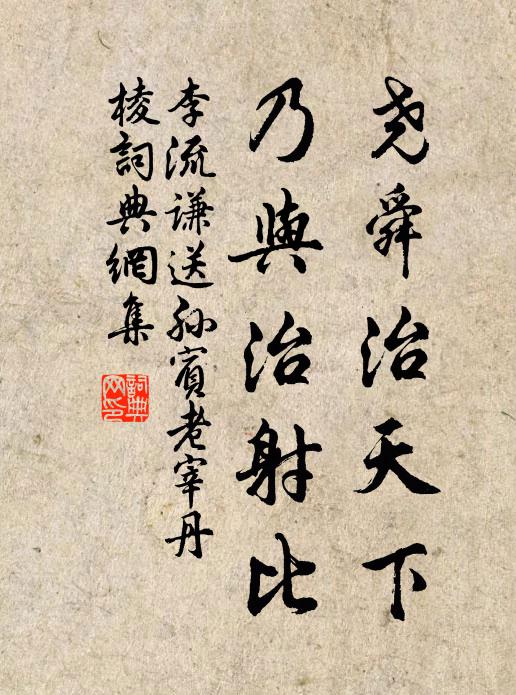 尧舜治天下
乃與治射比
李流谦送孙賓老宰丹
棱詞典網集
詞典
网印